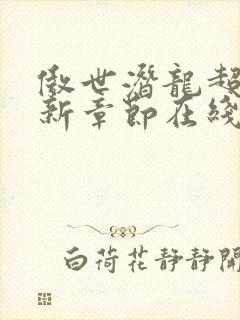 傲世潛龍超
新章節在綫
白荷花靜靜開